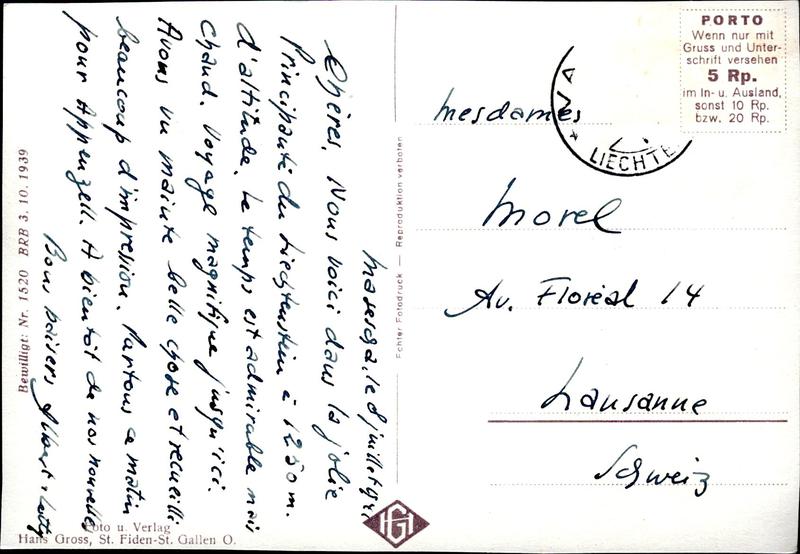 Masescha, le 8 juillet 1941
Chères, Nous voici dans la jolie
Principauté du Liechtenstein à 1250 m.
d'altitude. Le temps est admirable mais
chaud. Voyage magnifique jusqu'ici.
Avons vu mainte belle chose et recueilli
beaucoup d'impression. Partons ce matin
pour Appenzell. A bientôt de nos nouvelles
Bons baisers Albert +
Bewilligt: Nr. 1520 BRB 3. 10. 1939
Foto u. Verlag
Hans Gross, St. Fiden-St. Gallen O.
Echter Fotodruck — Reproduktion verboten
HG
PORTO
Wenn nur mit
Gruss und Unter-
schrift versehen
5 Rp.
im In- u. Ausland,
sonst 10 Rp.
bzw. 20 Rp.
VA
LIECHTE
Mesdames
Morel
Av. Floréal 14
Lausanne
Schweiz